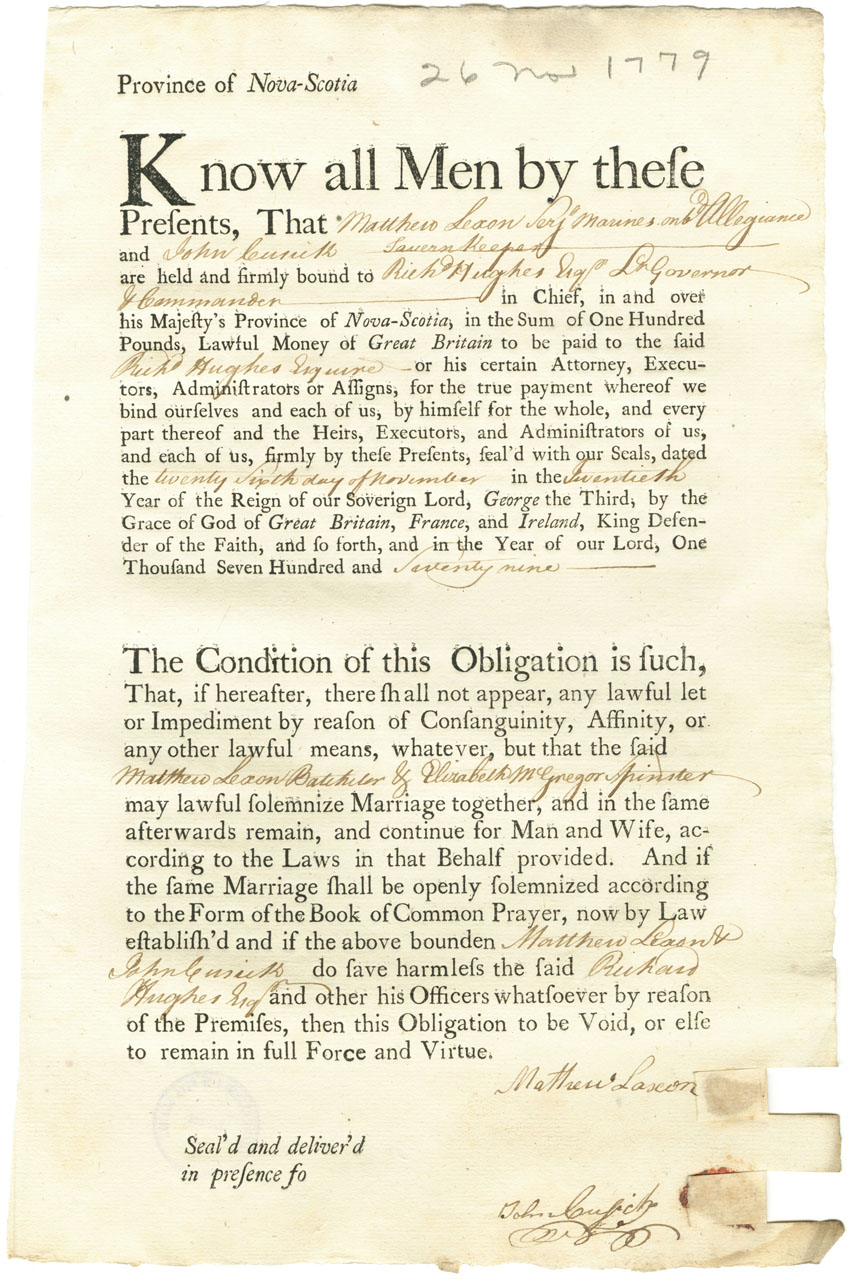 26 Nov 1779
Province of Nova-Scotia
Know all Men by theſe
Preſents, That Matthew Lexon Serjt Marines on bd Allegiance
and John Cusick Tavern Keeper
are held and firmly bound to Richd Hughes Esqr Lt Governor
& Commander in Chief, in and over
his Majeſty's Province of Nova-Scotia, in the Sum of One Hundred
Pounds, Lawful Money of Great Britain to be paid to the ſaid
Richd Hughes Esquire or his certain Attorney, Execu-
tors, Adminiſtrators or Aſſigns, for the true payment whereof we
bind ourſelves and each of us, by himſelf for the whole, and every
part thereof and the Heirs, Executors, and Adminiſtrators of us,
and each of us, firmly by theſe Preſents, ſeal'd with our Seals, dated
the twenty Sixth day of November in the Twentieth
Year of the Reign of our Soverign Lord, George the Third, by the
Grace of God of Great Britain, France, and Ireland, King Defen-
der of the Faith, and ſo forth, and in the Year of our Lord, One
Thouſand Seven Hundred and Seventy nine
The Condition of this Obligation is ſuch,
That, if hereafter, there ſhall not appear, any lawful let
or Impediment by reaſon of Conſanguinity, Affinity, or
any other lawful means, whatever, but that the ſaid
Matthew Lexon Batchelor & Elizabeth McGregor Spinster
may lawful ſolemnize Marriage together, and in the ſame
afterwards remain, and continue for Man and Wife, ac-
cording to the Laws in that Behalf provided. And if
the ſame Marriage ſhall be openly ſolemnized according
to the Form of the Book of Common Prayer, now by Law
eſtabliſh'd and if the above bounden Matthew Lexon &
John Cusick do ſave harmleſs the ſaid Richard
Hughes Esqr and other his Officers whatſoever by reaſon
of the Premiſes, then this Obligation to be Void, or elſe
to remain in full Force and Virtue.
Mathew Laxon
Seal'd and deliver'd
in preſence fo
John Cusick